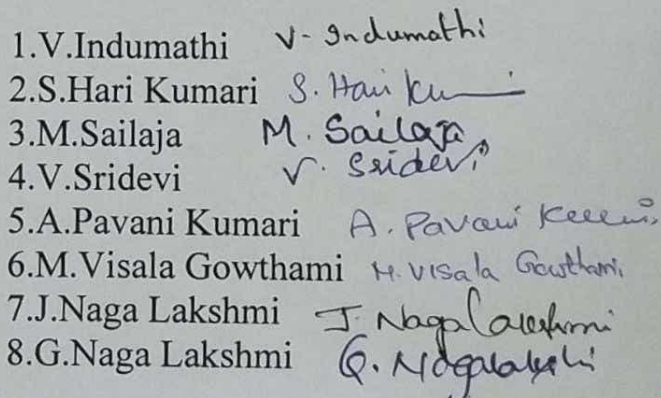 1.V.Indumathi V. Indumathi
2.S.Hari Kumari S. Hari Ku
3.M.Sailaja M. Sailaja
4.V.Sridevi V. Sridevi
5.A.Pavani Kumari A. Pavani Kumari
6.M.Visala Gowthami M. Visala Gowthami
7.J.Naga Lakshmi J. Naga Lakshmi
8.G.Naga Lakshmi G. Nagalakshi